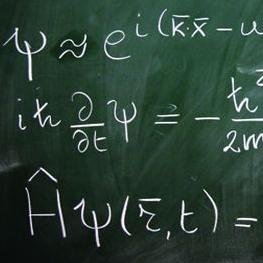 ψ ≈ e^{i(k̄·x̄ − ω
iħ ∂/∂t ψ = − ħ²/2m
Ĥψ(r̄,t) =